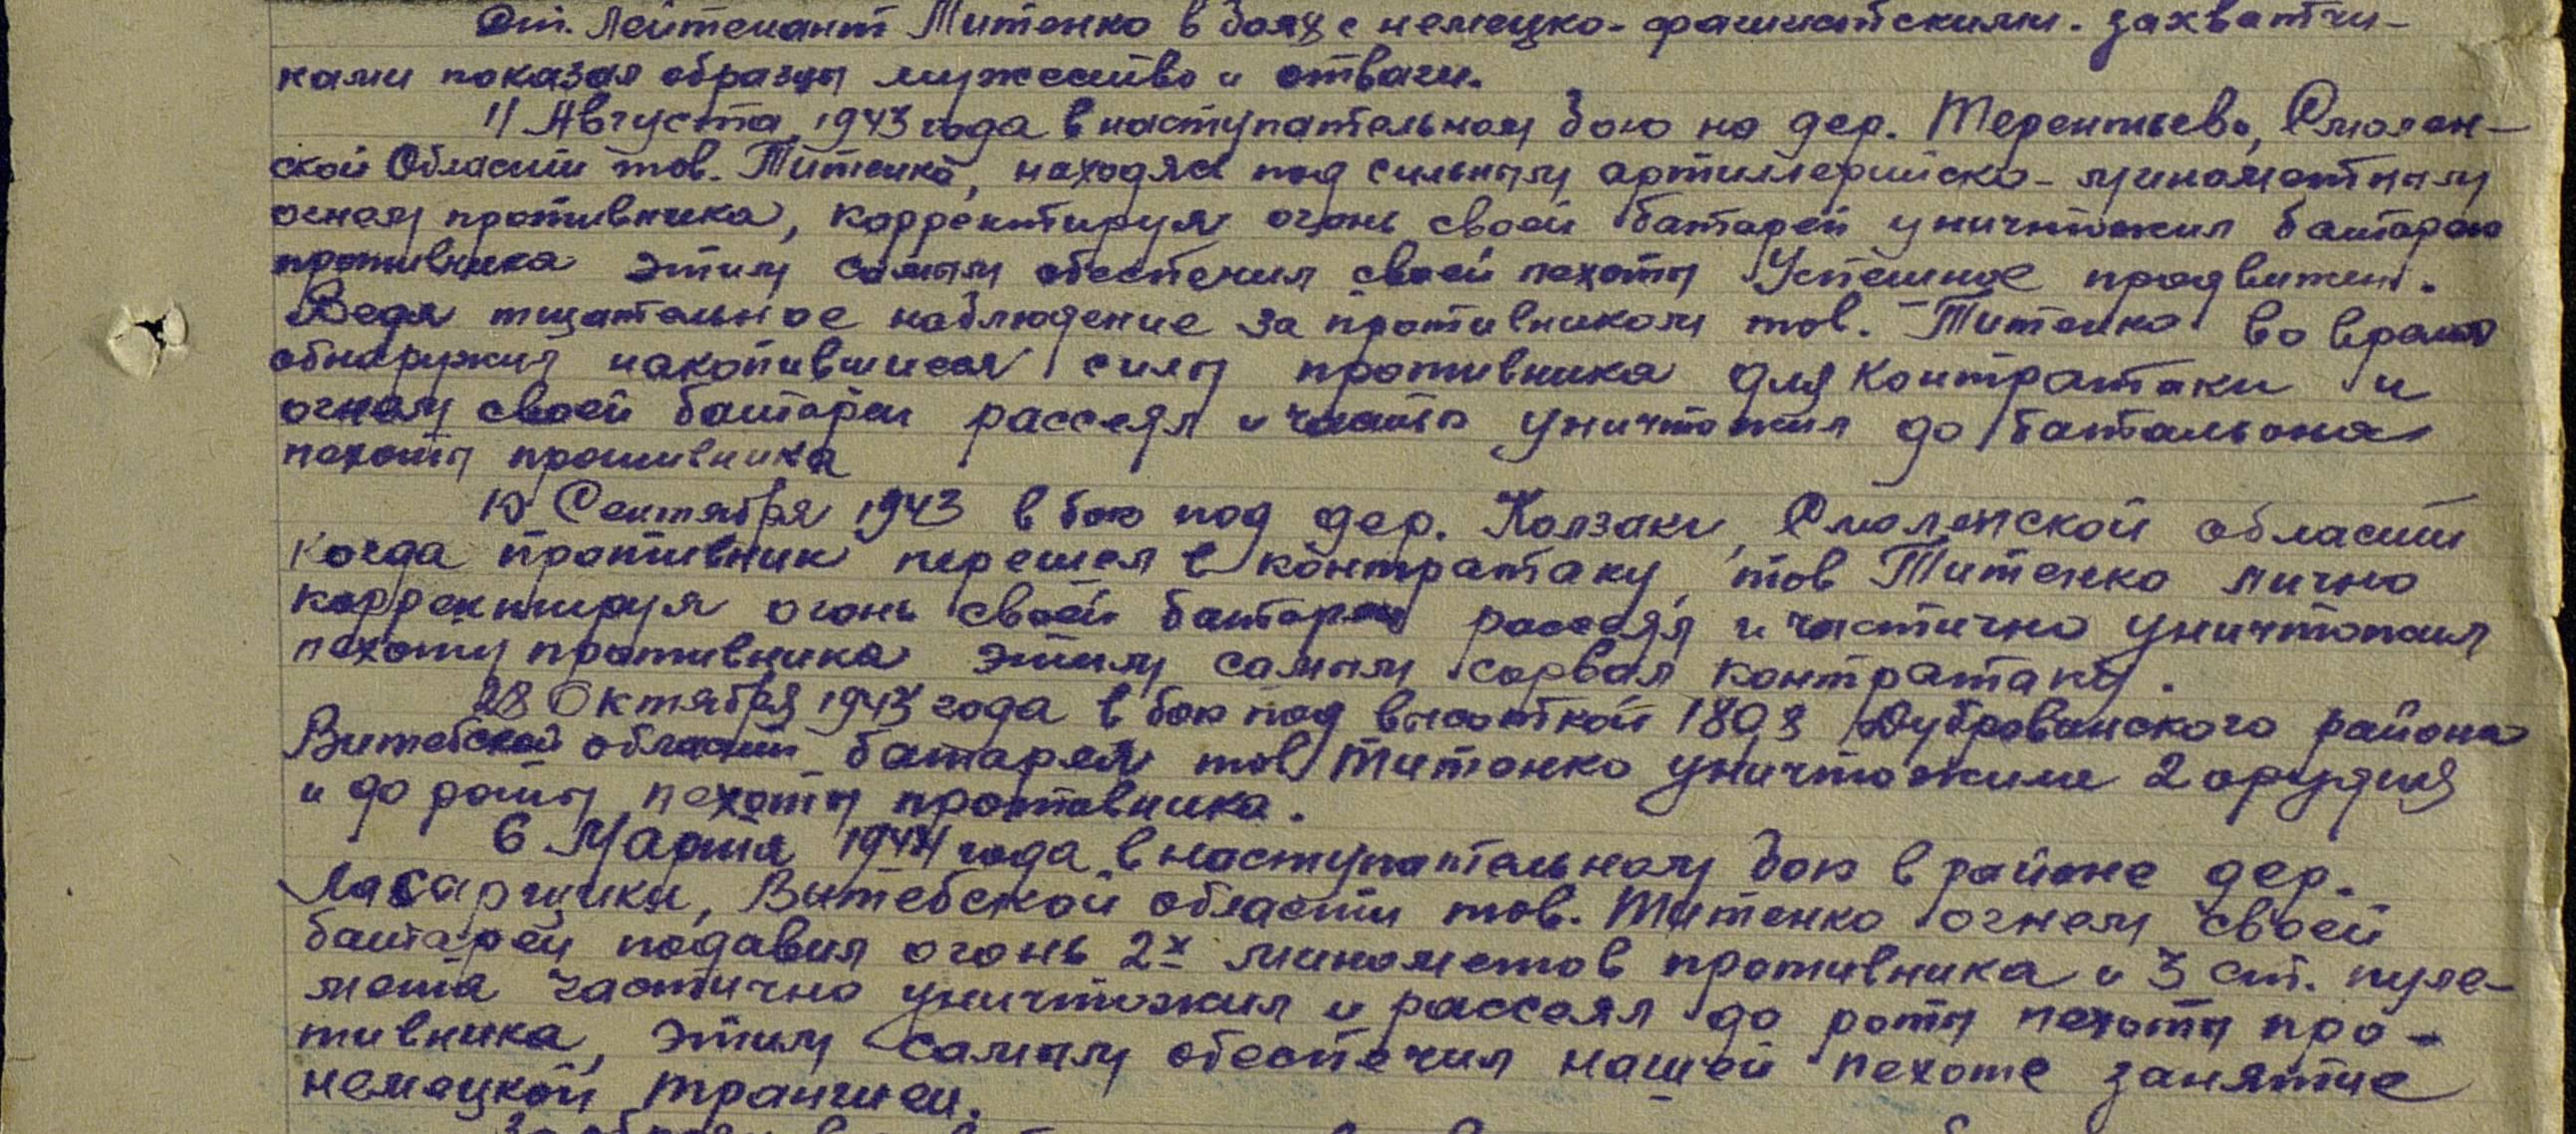 Ст. Лейтенант Титенко в боях с немецко-фашистскими захватчи-
ками показал образцы мужества и отваги.
11 Августа 1943 года в наступательном бою на дер. Терентьево, Смолен-
ской Области тов. Титенко, находясь под сильным артиллерийско-минометным
огнем противника, корректируя огонь своей батареи уничтожил батарею
противника этим самым обеспечил своей пехоты Успешное продвижен.
Ведя тщательное наблюдение за противником тов. Титенко во время
обнаружил накопившиеся силы противника для контратаки и
огнем своей батареи рассеял и часть уничтожил до батальона
пехоты противника
10 Сентября 1943 в бою под дер. Колзаки, Смоленской области
когда противник перешел в контратаку, тов Титенко лично
корректируя огонь своей батареи рассеял и частично уничтожил
пехоту противника этим самым сорвал контратаку.
28 Октября 1943 года в бою под высоткой 180,8 Дубровенского района
Витебской области батарея тов Титенко уничтожила 2 орудия
и до роты пехоты противника.
6 Марта 1944 года в наступательном бою в районе дер.
Ласарщики, Витебской области тов. Титенко огнем своей
батареи подавил огонь 2х минометов противника и 3 ст. пуле-
мета частично уничтожил и рассеял до роты пехоты про-
тивника, этим самым обеспечил нашей пехоте занятие
немецкой траншеи.